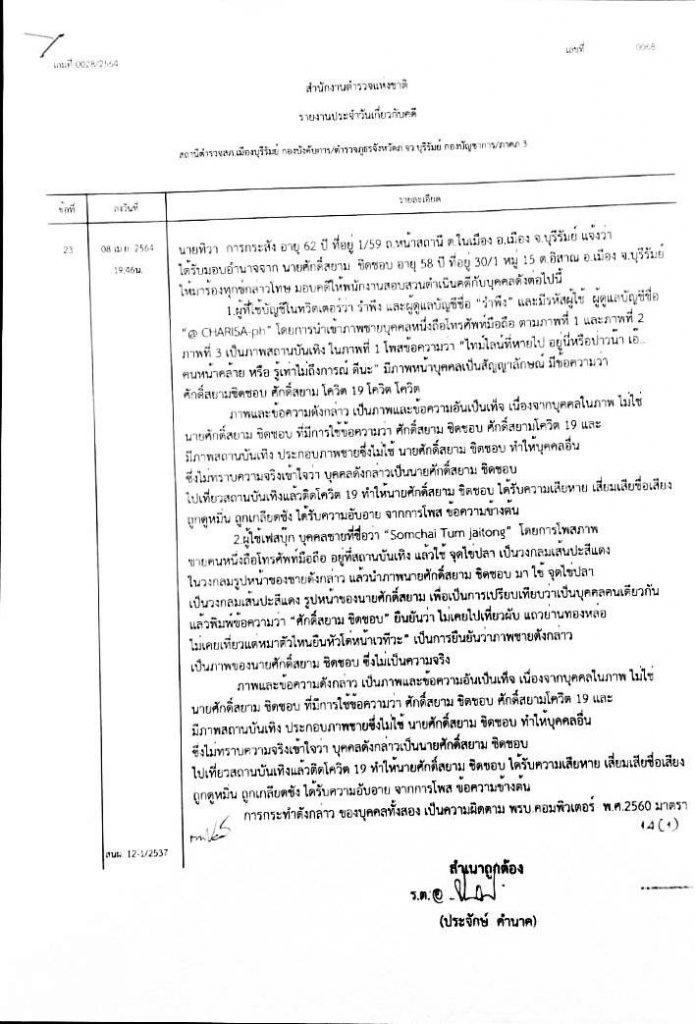 เล่มที่ 0028/2564
เลขที่ 0068
สำนักงานตำรวจแห่งชาติ
รายงานประจำวันเกี่ยวกับคดี
สถานีตำรวจสภ.เมืองบุรีรัมย์ กองบังคับการ/ตำรวจภูธรจังหวัดภ.จว.บุรีรัมย์ กองบัญชาการ/ภาคภ.3
ข้อที่ ลงวันที่ รายละเอียด
23 08 เม.ย. 2564 นายทิวา การกระสัง อายุ 62 ปี ที่อยู่ 1/59 ถ.หน้าสถานี ต.ในเมือง อ.เมือง จ.บุรีรัมย์ แจ้งว่า
19:46น. ได้รับมอบอำนาจจาก นายศักดิ์สยาม ชิดชอบ อายุ 58 ปี ที่อยู่ 30/1 หมู่ 15 ต.อิสาณ อ.เมือง จ.บุรีรัมย์
ให้มาร้องทุกข์กล่าวโทษ มอบคดีให้พนักงานสอบสวนดำเนินคดีกับบุคคลดังต่อไปนี้
1.ผู้ที่ใช้บัญชีในทวิตเตอร์ว่า รำพึง และผู้ดูแลบัญชีชื่อ "รำพึง" และมีรหัสผู้ใช้ ผู้ดูแลบัญชีชื่อ
"@ CHARISA-ph" โดยการนำเข้าภาพชายบุคคลหนึ่งถือโทรศัพท์มือถือ ตามภาพที่ 1 และภาพที่ 2
ภาพที่ 3 เป็นภาพสถานบันเทิง ในภาพที่ 1 โพสข้อความว่า "ไทม์ไลน์ที่หายไป อยู่นี่หรือป่าวน้า เอ๊..
คนหน้าคล้าย หรือ รู้เท่าไม่ถึงการณ์ ดีนะ" มีภาพหน้าบุคคลเป็นสัญญาลักษณ์ มีข้อความว่า
ศักดิ์สยามชิดชอบ ศักดิ์สยาม โควิด 19 โควิต โควิต
ภาพและข้อความดังกล่าว เป็นภาพและข้อความอันเป็นเท็จ เนื่องจากบุคคลในภาพ ไม่ใช่
นายศักดิ์สยาม ชิดชอบ ที่มีการใช้ข้อความว่า ศักดิ์สยาม ชิดชอบ ศักดิ์สยามโควิด 19 และ
มีภาพสถานบันเทิง ประกอบภาพชายซึ่งไม่ใช้ นายศักดิ์สยาม ชิดชอบ ทำให้บุคคลอื่น
ซึ่งไม่ทราบความจริงเข้าใจว่า บุคคลดังกล่าวเป็นนายศักดิ์สยาม ชิดชอบ
ไปเที่ยวสถานบันเทิงแล้วติดโควิด 19 ทำให้นายศักดิ์สยาม ชิดชอบ ได้รับความเสียหาย เสื่อมเสียชื่อเสียง
ถูกดูหมิ่น ถูกเกลียดชัง ได้รับความอับอาย จากการโพส ข้อความข้างต้น
2.ผู้ใช้เฟสบุ๊ก บุคคลชายที่ชื่อว่า "Somchai Tum jaitong" โดยการโพสภาพ
ชายคนหนึ่งถือโทรศัพท์มือถือ อยู่ที่สถานบันเทิง แล้วใช้ จุดไข่ปลา เป็นวงกลมเส้นปะสีแดง
ในวงกลมรูปหน้าของชายดังกล่าว แล้วนำภาพนายศักดิ์สยาม ชิดชอบ มา ใช้ จุดไข่ปลา
เป็นวงกลมเส้นปะสีแดง รูปหน้าของนายศักดิ์สยาม เพื่อเป็นการเปรียบเทียบว่าเป็นบุคคลคนเดียวกัน
แล้วพิมพ์ข้อความว่า "ศักดิ์สยาม ชิดชอบ" ยืนยันว่า ไม่เคยไปเที่ยวผับ แถวย่านทองหล่อ
ไม่เคยเที่ยวแต่หมาตัวไหนยืนหัวโด่หน้าเวทีวะ" เป็นการยืนยันว่าภาพชายดังกล่าว
เป็นภาพของนายศักดิ์สยาม ชิดชอบ ซึ่งไม่เป็นความจริง
ภาพและข้อความดังกล่าว เป็นภาพและข้อความอันเป็นเท็จ เนื่องจากบุคคลในภาพ ไม่ใช่
นายศักดิ์สยาม ชิดชอบ ที่มีการใช้ข้อความว่า ศักดิ์สยาม ชิดชอบ ศักดิ์สยามโควิด 19 และ
มีภาพสถานบันเทิง ประกอบภาพชายซึ่งไม่ใช้ นายศักดิ์สยาม ชิดชอบ ทำให้บุคคลอื่น
ซึ่งไม่ทราบความจริงเข้าใจว่า บุคคลดังกล่าวเป็นนายศักดิ์สยาม ชิดชอบ
ไปเที่ยวสถานบันเทิงแล้วติดโควิด 19 ทำให้นายศักดิ์สยาม ชิดชอบ ได้รับความเสียหาย เสื่อมเสียชื่อเสียง
ถูกดูหมิ่น ถูกเกลียดชัง ได้รับความอับอาย จากการโพส ข้อความข้างต้น
การกระทำดังกล่าว ของบุคคลทั้งสอง เป็นความผิดตาม พรบ.คอมพิวเตอร์ พ.ศ.2560 มาตรา
14(1)
สนผ. 12-1/2537
สำเนาถูกต้อง
ร.ต.อ.
(ประจักษ์ คำนาค)